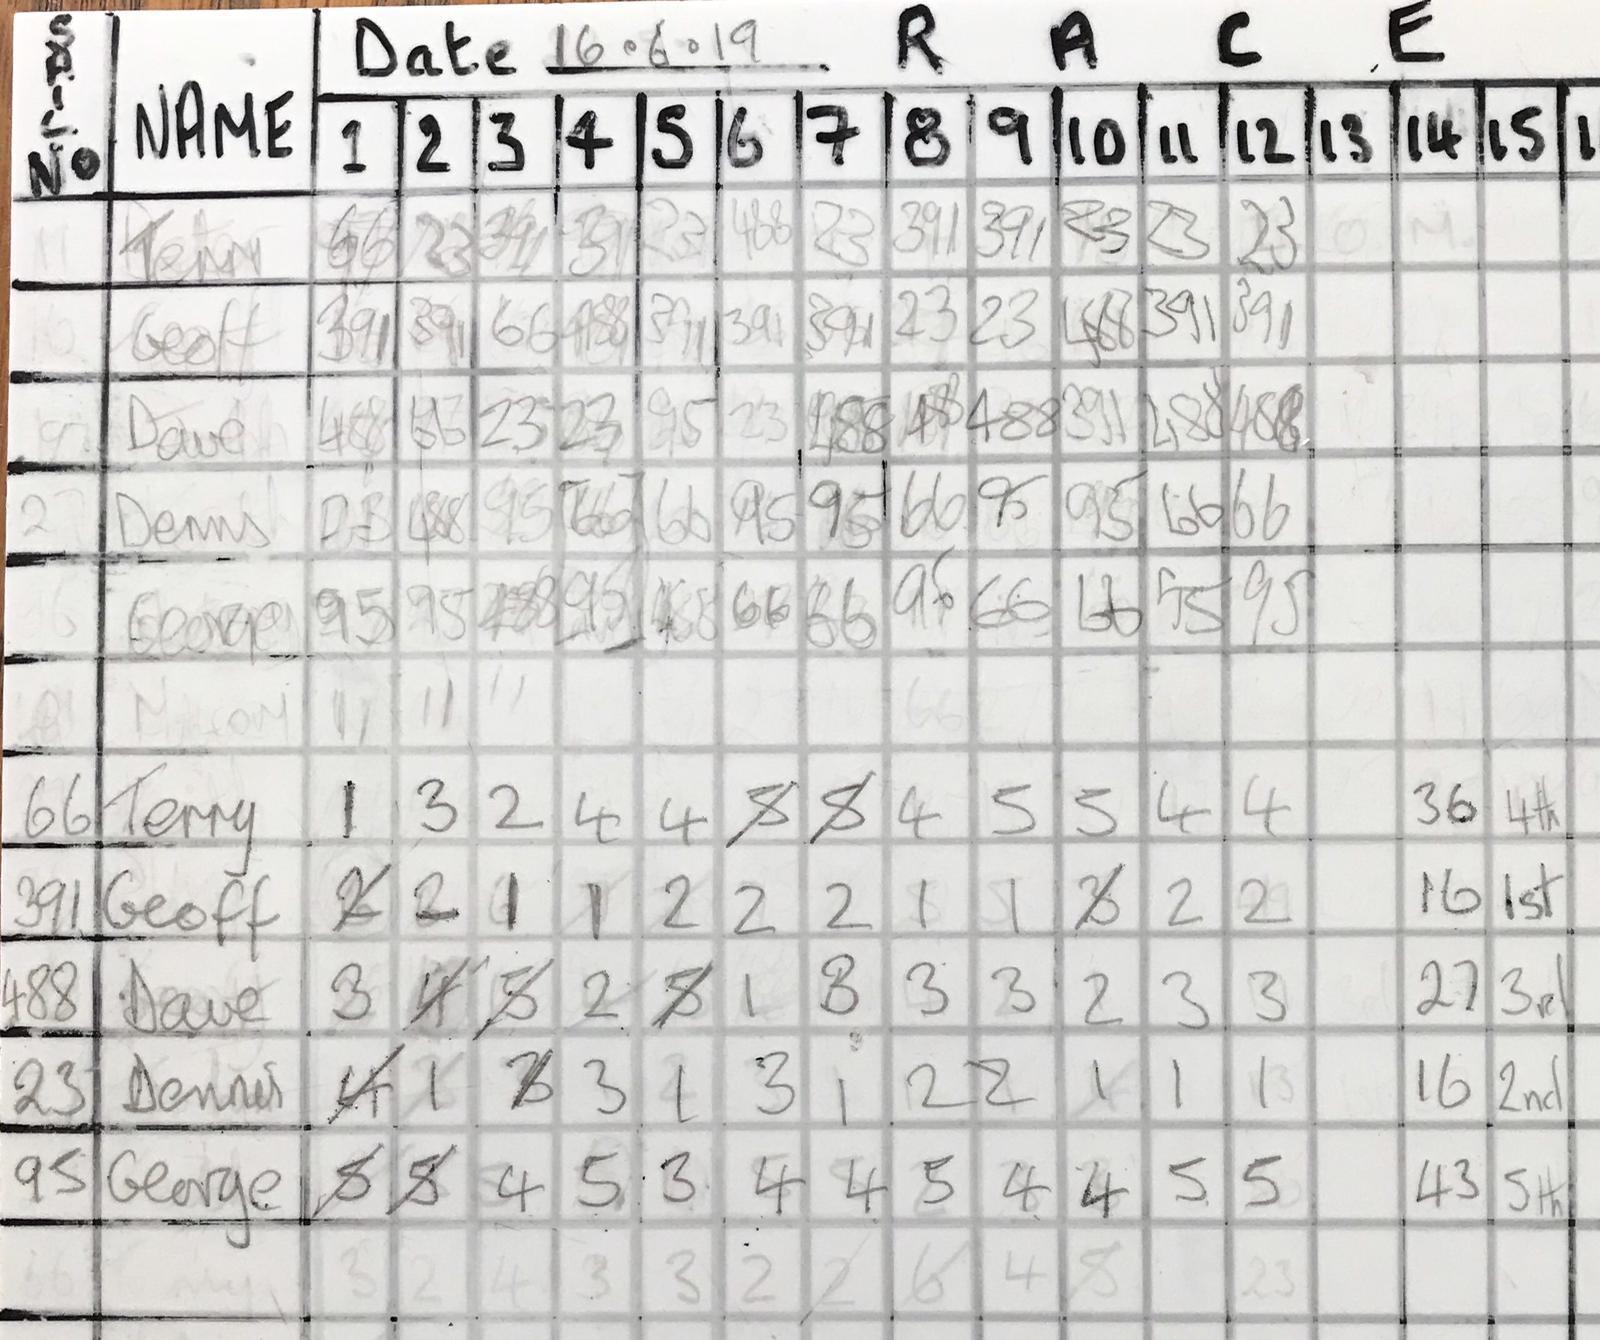 Date 16.6.19 R A C E
SAIL No NAME 1 2 3 4 5 6 7 8 9 10 11 12 13 14 15
Terry 66 23 391 391 23 488 23 391 391 23 23 23
Geoff 391 391 66 488 391 391 391 23 23 488 391 391
Dave 488 66 23 23 95 23 488 488 488 391 488 488
Dennis 23 488 95 66 66 95 95 66 95 95 66 66
George 95 95 488 95 488 66 66 95 66 66 95 95
11 11 11
66 Terry 1 3 2 4 4 5 5 4 5 5 4 4 36 4th
391 Geoff 2 2 1 1 2 2 2 1 1 3 2 2 16 1st
488 Dave 3 4 5 2 5 1 3 3 3 2 3 3 27 3rd
23 Dennis 4 1 3 3 1 3 1 2 2 1 1 1 16 2nd
95 George 5 5 4 5 3 4 4 5 4 4 5 5 43 5th
3 2 4 3 3 2 2 6 4 5 23